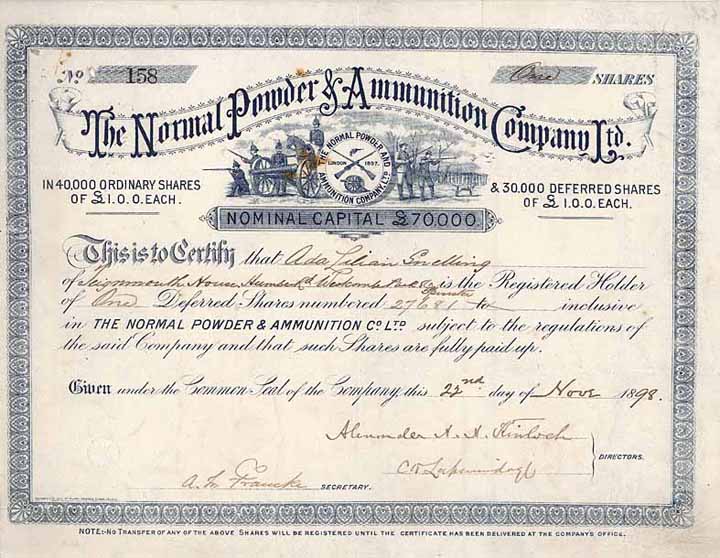 No 158 One SHARES
The Normal Powder & Ammunition Company Ltd.
THE NORMAL POWDER AND AMMUNITION COMPANY, LTD
LONDON 1897.
IN 40,000 ORDINARY SHARES
OF £1.0.0. EACH.
& 30,000 DEFERRED SHARES
OF £1.0.0. EACH.
NOMINAL CAPITAL £70,000.
This is to Certify that Ada Lilian Snelling
of House, Westcombe Park is the Registered Holder
of One Deferred Shares numbered 27681 to inclusive
in THE NORMAL POWDER & AMMUNITION Co. LTD. subject to the regulations of
the said Company and that such Shares are fully paid up.
Given under the Common Seal of the Company, this 22nd day of Novr 1898.
Alexander A. A. Kinloch
DIRECTORS.
SECRETARY.
NOTE:- No TRANSFER OF ANY OF THE ABOVE SHARES WILL BE REGISTERED UNTIL THE CERTIFICATE HAS BEEN DELIVERED AT THE COMPANY'S OFFICE.